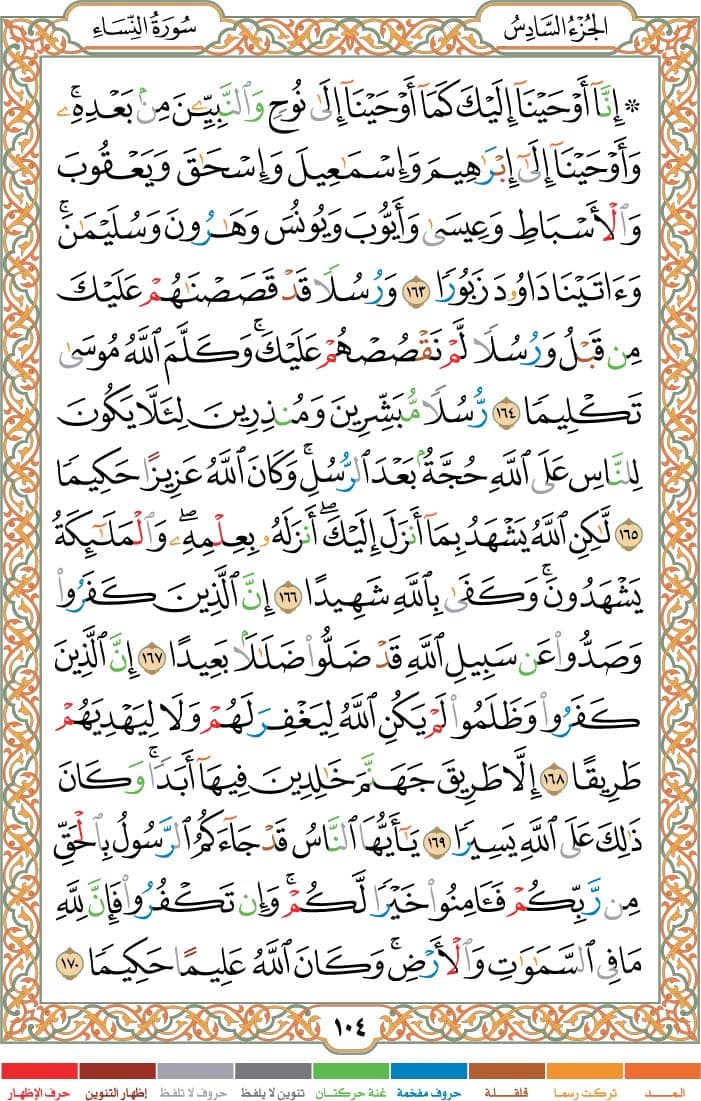 الجُزْءُ السَّادِسُ
سُورَةُ النِّسَاءِ
۞ إِنَّآ أَوْحَيْنَآ إِلَيْكَ كَمَآ أَوْحَيْنَآ إِلَىٰ نُوحٍ وَٱلنَّبِيِّـۧنَ مِنۢ بَعْدِهِۦۚ
وَأَوْحَيْنَآ إِلَىٰٓ إِبْرَٰهِيمَ وَإِسْمَٰعِيلَ وَإِسْحَٰقَ وَيَعْقُوبَ
وَٱلْأَسْبَاطِ وَعِيسَىٰ وَأَيُّوبَ وَيُونُسَ وَهَٰرُونَ وَسُلَيْمَٰنَۚ
وَءَاتَيْنَا دَاوُۥدَ زَبُورًا ١٦٣ وَرُسُلًا قَدْ قَصَصْنَٰهُمْ عَلَيْكَ
مِن قَبْلُ وَرُسُلًا لَّمْ نَقْصُصْهُمْ عَلَيْكَۚ وَكَلَّمَ ٱللَّهُ مُوسَىٰ
تَكْلِيمًا ١٦٤ رُّسُلًا مُّبَشِّرِينَ وَمُنذِرِينَ لِئَلَّا يَكُونَ
لِلنَّاسِ عَلَى ٱللَّهِ حُجَّةٌۢ بَعْدَ ٱلرُّسُلِۚ وَكَانَ ٱللَّهُ عَزِيزًا حَكِيمًا
١٦٥ لَّٰكِنِ ٱللَّهُ يَشْهَدُ بِمَآ أَنزَلَ إِلَيْكَۖ أَنزَلَهُۥ بِعِلْمِهِۦۖ وَٱلْمَلَٰٓئِكَةُ
يَشْهَدُونَۚ وَكَفَىٰ بِٱللَّهِ شَهِيدًا ١٦٦ إِنَّ ٱلَّذِينَ كَفَرُوا۟
وَصَدُّوا۟ عَن سَبِيلِ ٱللَّهِ قَدْ ضَلُّوا۟ ضَلَٰلًۢا بَعِيدًا ١٦٧ إِنَّ ٱلَّذِينَ
كَفَرُوا۟ وَظَلَمُوا۟ لَمْ يَكُنِ ٱللَّهُ لِيَغْفِرَ لَهُمْ وَلَا لِيَهْدِيَهُمْ
طَرِيقًا ١٦٨ إِلَّا طَرِيقَ جَهَنَّمَ خَٰلِدِينَ فِيهَآ أَبَدًاۚ وَكَانَ
ذَٰلِكَ عَلَى ٱللَّهِ يَسِيرًا ١٦٩ يَٰٓأَيُّهَا ٱلنَّاسُ قَدْ جَآءَكُمُ ٱلرَّسُولُ بِٱلْحَقِّ
مِن رَّبِّكُمْ فَـَٔامِنُوا۟ خَيْرًا لَّكُمْۚ وَإِن تَكْفُرُوا۟ فَإِنَّ لِلَّهِ
مَا فِى ٱلسَّمَٰوَٰتِ وَٱلْأَرْضِۚ وَكَانَ ٱللَّهُ عَلِيمًا حَكِيمًا ١٧٠
١٠٤
المـــد تركت رسما قلقلة حروف مفخمة غنة حركتان تنوين لا يلفظ حروف لا تلفظ إظهار التنوين حرف الإظهار